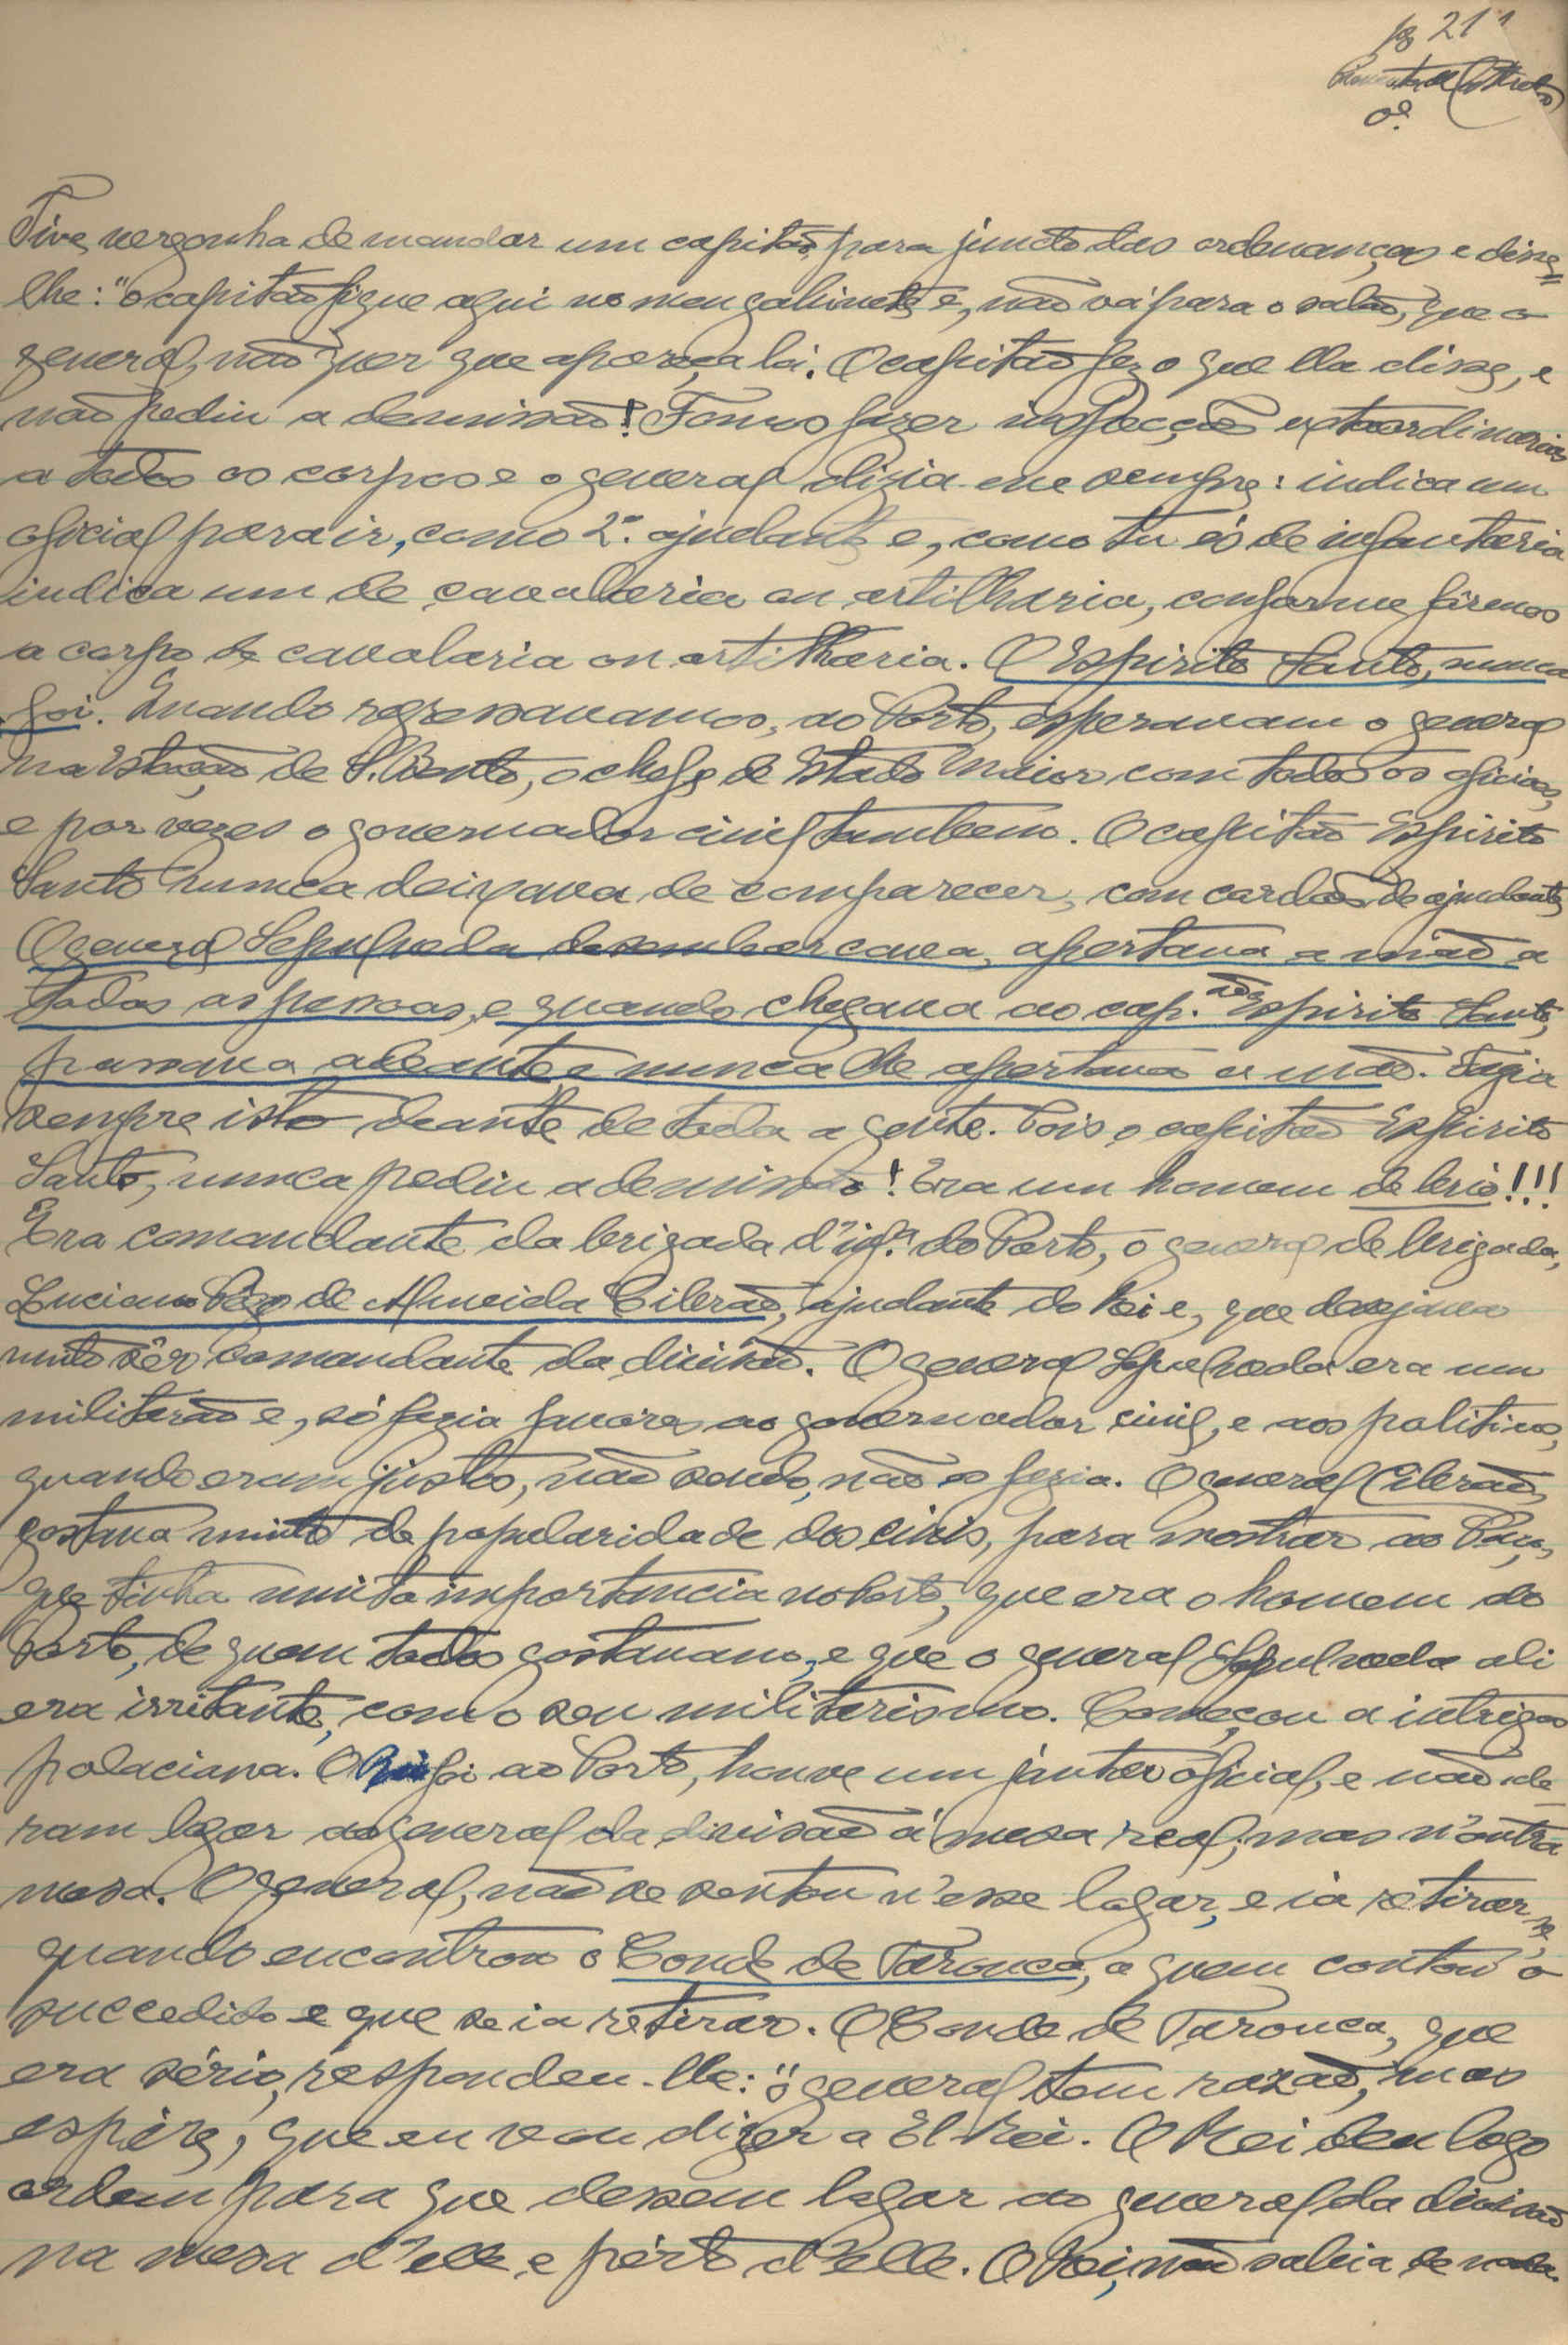 21
Tive vergonha de mandar um capitão para juncto das ordenanças e disse=
lhe: "o capitão fique aqui no meu gabinete e, não vá para o salão, que o
general, não quer que apareça lá. O capitão fez o que lhe disse, e
não pediu a demissão! Fomos fazer inspecções extraordinarias
a todos os corpos e o general dizia-me sempre: indica um
oficial para ir, como 2.º ajudante e, como tu és de infantaria
indica um de cavalaria ou artilharia, conforme fôrmos
a corpo de cavalaria ou artilharia. O Espirito Santo, nunca
foi. Quando regressavamos, ao Porto, esperavam o general
na Estação de S. Bento, o chefe de Estado Maior com todos os oficiaes,
e por vezes o governador civil tambem. O capitão Espirito
Santo nunca deixava de comparecer, com cordões de ajudante,
O general Sepulveda desembarcava, apertava a mão a
todas as pessoas, e quando chegava ao cap. ão Espirito Santo,
passava adeante e nunca lhe apertava a mão. Fazia
sempre isto deante de toda a gente. Pois o capitão Espirito
Santo, nunca pediu a demissão! Era um homem de brio!!!
Era comandante da brigada d'inf.ª do Porto, o general de brigada,
Luciano Pego de Almeida Cibrão, ajudante do Rei e, que desejava
muito sêr comandante da divisão. O general Sepulveda era um
militarão e, só fazia favores ao governador civil, e aos politicos,
quando eram justos, não sendo, não os fazia. O general Cibrão,
gostava muito de popularidade dos civis, para mostrar ao Paço,
que tinha muita importancia no Porto, que era o homem do
Porto, de quem todos gostavam, e que o general Sepulveda ali
era irritante, com o seu militarismo. Começou a intriga
palaciana. O Rei foi ao Porto, houve um jantar oficial, e não de-
ram logar ao general da divisão á mesa real, mas n'outra
mesa. O general, não se sentou n'esse logar, e ia retirar-se,
quando encontrou o Conde de Tarouca, a quem contou o
succedido e que se ia retirar. O Conde de Tarouca, que
era sério, respondeu-lhe: "o general tem razão, mas
espére, que eu vou dizer a El-Rei. O Rei deu logo
ordem para que dessem logar ao general da divisão
na mesa d'elle, e pérto d'elle. O Rei, não sabia de nada.